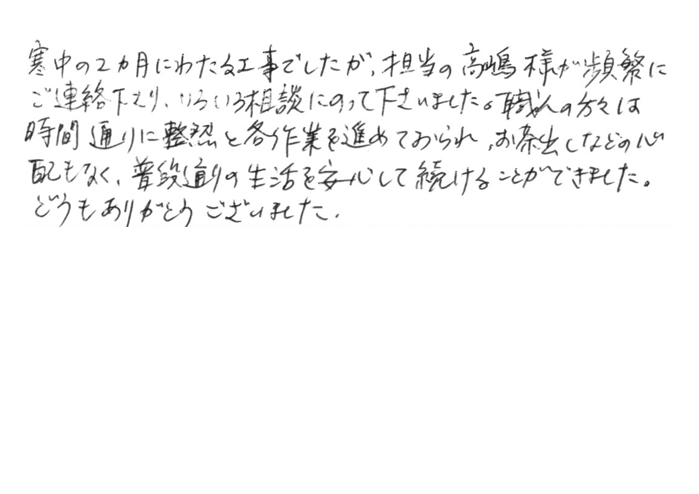 寒中の2カ月にわたる工事でしたが、担当の高嶋様が頻繁に
ご連絡下さり、いろいろ相談にのって下さいました。職人の方々は
時間通りに整然と各作業を進めておられ、お茶出しなどの心
配もなく、普段通りの生活を安心して続けることができました。
どうもありがとうございました。